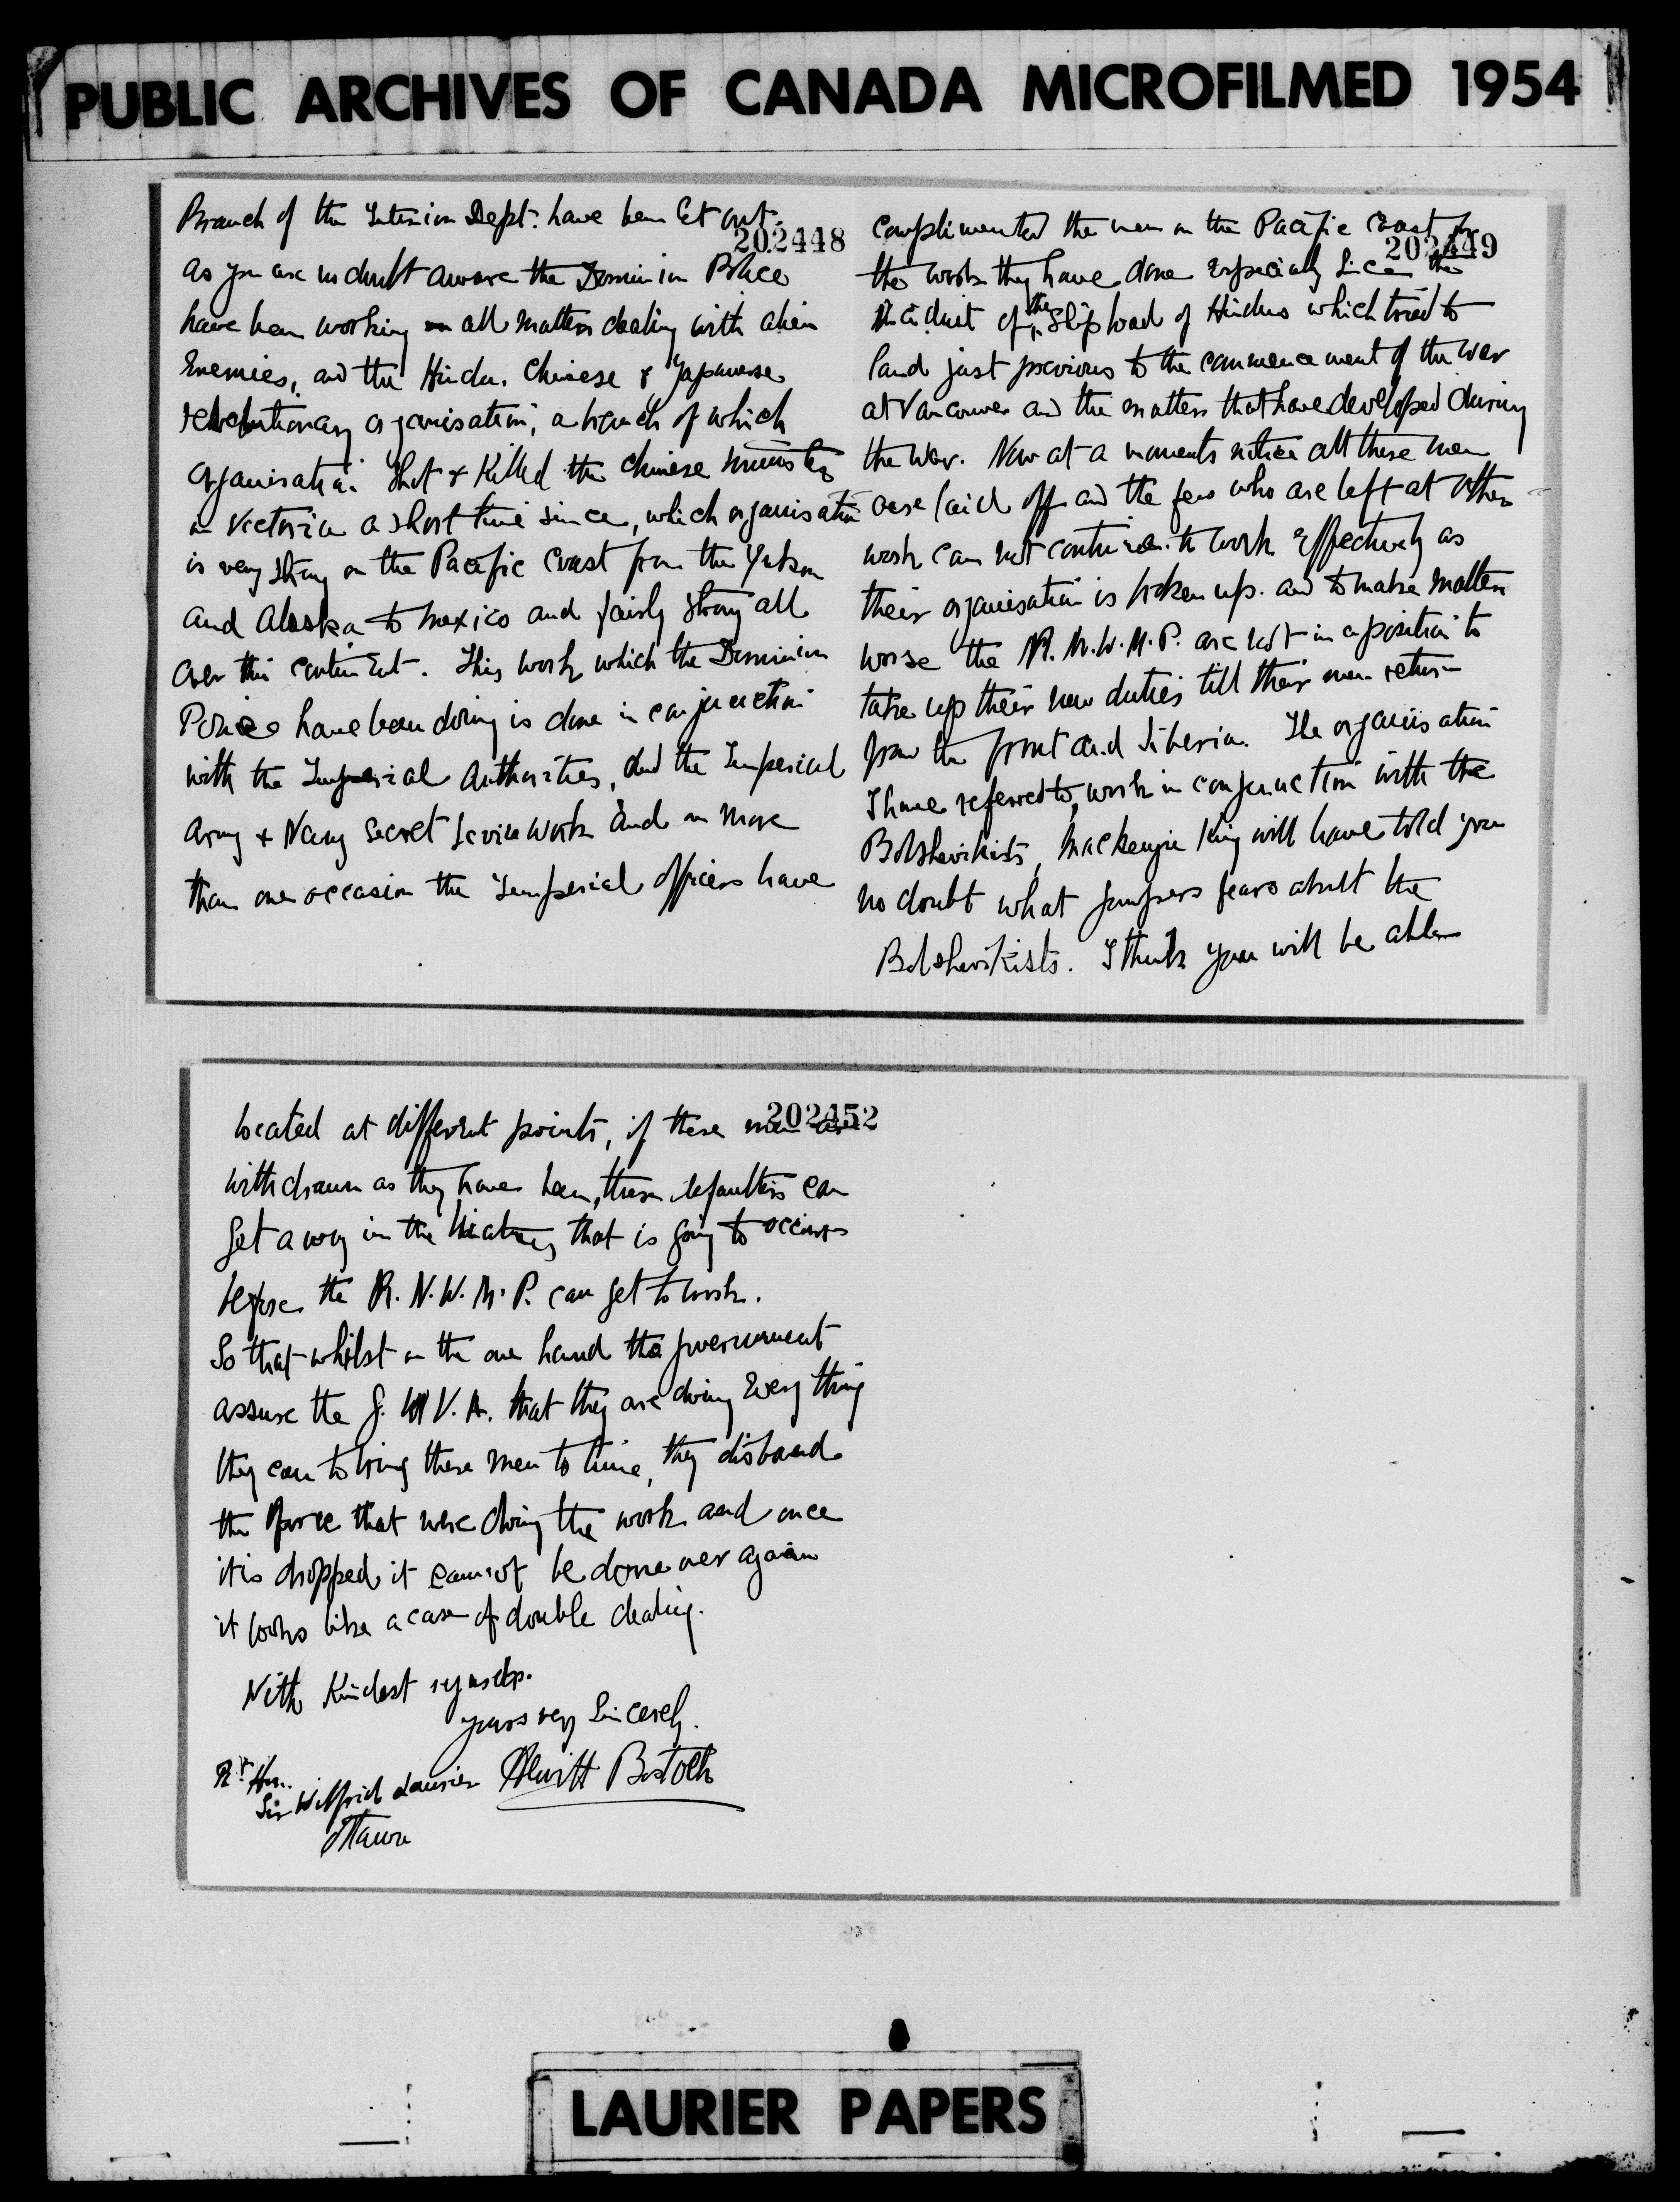 PUBLIC ARCHIVES OF CANADA MICROFILMED 1954
Branch of the Interior Dept. have been let out.
202448
As you are no doubt aware the Dominion Police
have been working on all matters dealing with alien
Enemies, and the Hindu, Chinese & Japanese
revolutionary organisation, a branch of which
organisation shot & killed the Chinese minister
in Victoria a short time since, which organisation
is very strong on the Pacific Coast from the Yukon
and Alaska to Mexico and fairly strong all
over this continent. This work which the Dominion
Police have been doing is done in conjunction
with the Imperial Authorities, and the Imperial
Army & Navy Secret Service work and on more
than one occasion the Imperial officers have
complimented the men on the Pacific Coast for
202449
the work they have done especially since the
incident of the Shipload of Hindus which tried to
land just previous to the commencement of the war
at Vancouver and the matters that have developed during
the War. Now at a moments notice all these men
are laid off and the few who are left at other
work can not continue to work effectively as
their organisation is broken up. and to make matters
worse the R.N.W.M.P. are not in a position to
take up their new duties till their men return
from the front and Siberia. The organisation
I have referred to, work in conjunction with the
Bolshevikists, Mackenzie King will have told you
no doubt what Gompers fears about the
Bolshevikists. I think you will be able
202452
located at different points, if these men are
withdrawn as they have been, these defaulters can
get away in the hiatus that is going to occur
before the R.N.W.M.P. can get to work.
So that whilst on the one hand the government
assure the G.W.V.A. that they are doing Every thing
they can to bring these men to time, they disband
the force that were doing the work and once
it is dropped it cannot be done over again
it looks like a case of double dealing.
With Kindest regards.
yours very Sincerely.
Hewitt Bostock
Rt Hon.
Sir Wilfrid Laurier
Ottawa
LAURIER PAPERS